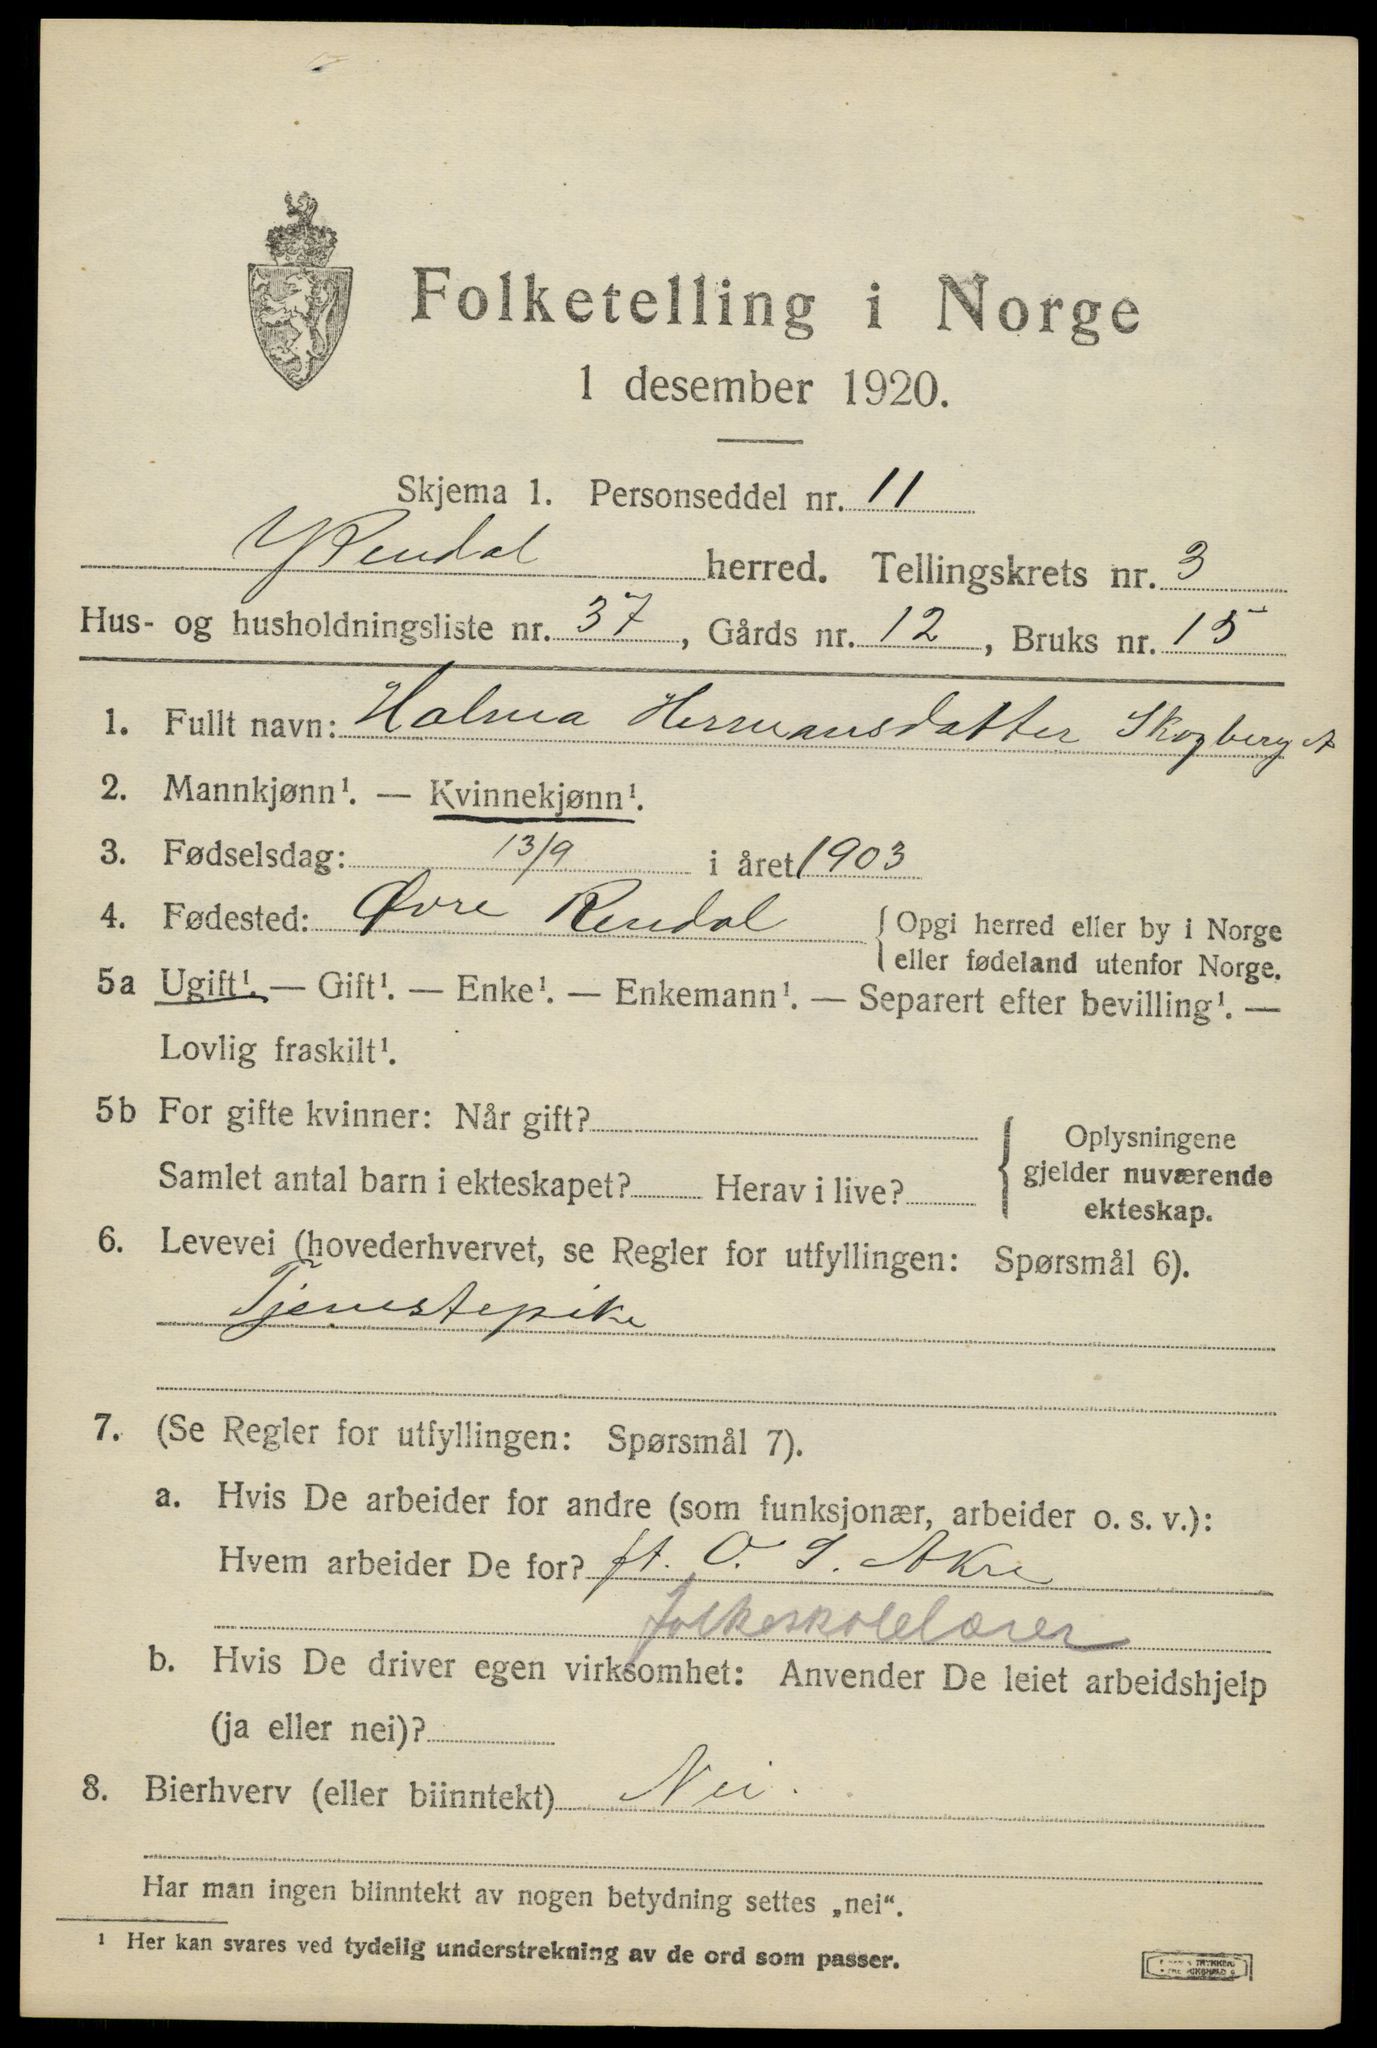 Folketelling i Norge
1 desember 1920.
Skjema 1. Personseddel nr. 11
Y Rendal herred. Tellingskrets nr. 3
Hus- og husholdningsliste nr. 37, Gårds nr. 12, Bruks nr. 15
1. Fullt navn: Halma Hermansdatter Skogberget
2. Mannkjønn¹. — Kvinnekjønn¹.
3. Fødselsdag: 13/9 i året 1903
4. Fødested: Øvre Rendal { Opgi herred eller by i Norge
eller fødeland utenfor Norge.
5a Ugift¹. — Gift¹. — Enke¹. — Enkemann¹. — Separert efter bevilling¹. —
Lovlig fraskilt¹.
5b For gifte kvinner: Når gift?
Samlet antal barn i ekteskapet? Herav i live?
{ Oplysningene
gjelder nuværende
ekteskap.
6. Levevei (hovederhvervet, se Regler for utfyllingen: Spørsmål 6).
Tjenestepike
7. (Se Regler for utfyllingen: Spørsmål 7).
a. Hvis De arbeider for andre (som funksjonær, arbeider o. s. v.):
Hvem arbeider De for? O. S. Akre
folkeskolelærer
b. Hvis De driver egen virksomhet: Anvender De leiet arbeidshjelp
(ja eller nei)?
8. Bierhverv (eller biinntekt) Nei.
Har man ingen biinntekt av nogen betydning settes „nei“.
¹ Her kan svares ved tydelig understrekning av de ord som passer.